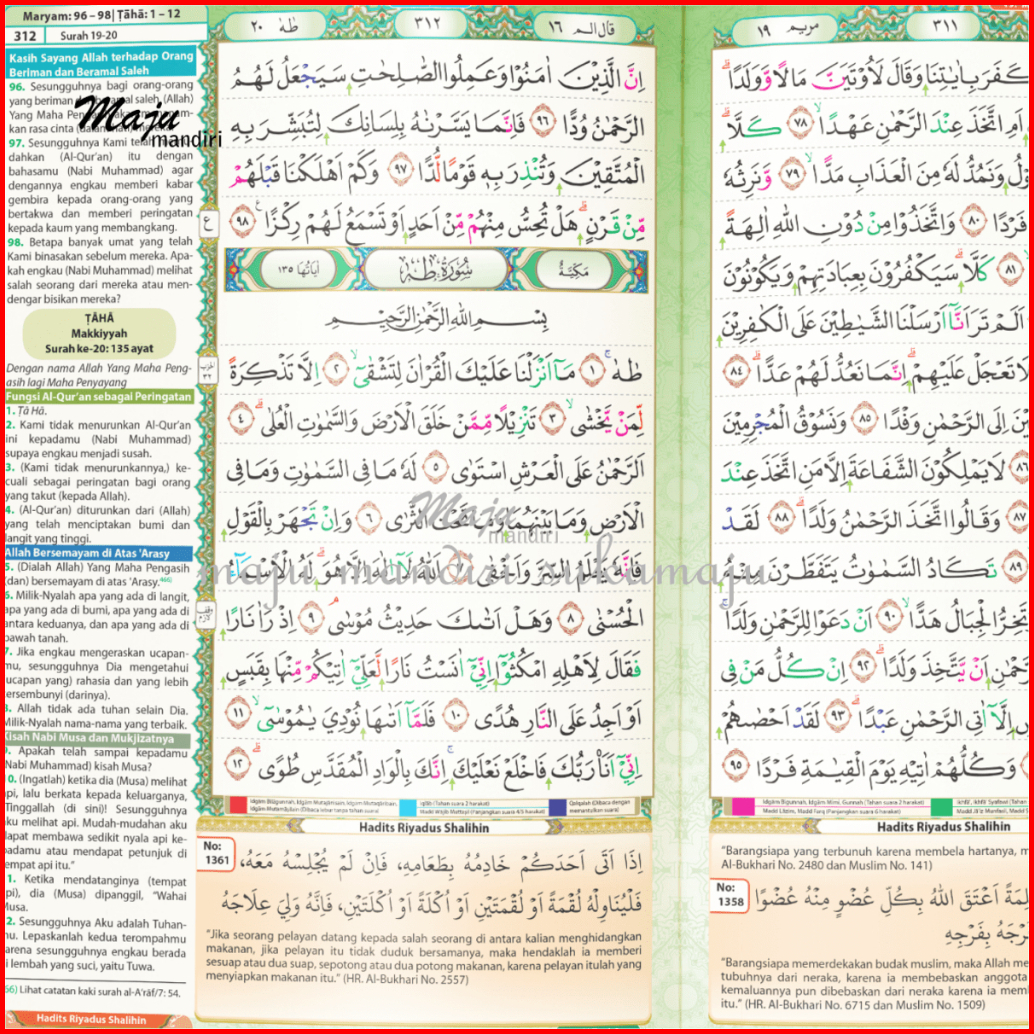 Maryam: 96 – 98| Ṭāhā: 1 – 12
312 Surah 19-20
Kasih Sayang Allah terhadap Orang
Beriman dan Beramal Saleh
96. Sesungguhnya bagi orang-orang
yang beriman dan beramal saleh, (Allah)
Yang Maha Pengasih
kan rasa cinta (dalam hati) mereka.
97. Sesungguhnya Kami telah
dahkan (Al-Qur'an) itu dengan
bahasamu (Nabi Muhammad) agar
dengannya engkau memberi kabar
gembira kepada orang-orang yang
bertakwa dan memberi peringatan
kepada kaum yang membangkang.
98. Betapa banyak umat yang telah
Kami binasakan sebelum mereka. Apa-
kah engkau (Nabi Muhammad) melihat
salah seorang dari mereka atau men-
dengar bisikan mereka?
ṬĀHĀ
Makkiyyah
Surah ke-20: 135 ayat
Dengan nama Allah Yang Maha Peng-
asih lagi Maha Penyayang
Fungsi Al-Qur'an sebagai Peringatan
1. Ṭā Hā.
2. Kami tidak menurunkan Al-Qur'an
ini kepadamu (Nabi Muhammad)
supaya engkau menjadi susah.
3. (Kami tidak menurunkannya,) ke-
cuali sebagai peringatan bagi orang
yang takut (kepada Allah).
4. (Al-Qur'an) diturunkan dari (Allah)
yang telah menciptakan bumi dan
langit yang tinggi.
Allah Bersemayam di Atas 'Arasy
5. (Dialah Allah) Yang Maha Pengasih
(dan) bersemayam di atas 'Arasy.466)
6. Milik-Nyalah apa yang ada di langit,
apa yang ada di bumi, apa yang ada di
antara keduanya, dan apa yang ada di
bawah tanah.
7. Jika engkau mengeraskan ucapan-
mu, sesungguhnya Dia mengetahui
(ucapan yang) rahasia dan yang lebih
tersembunyi (darinya).
8. Allah tidak ada tuhan selain Dia.
Milik-Nyalah nama-nama yang terbaik.
Kisah Nabi Musa dan Mukjizatnya
9. Apakah telah sampai kepadamu
(Nabi Muhammad) kisah Musa?
10. (Ingatlah) ketika dia (Musa) melihat
api, lalu berkata kepada keluarganya,
"Tinggallah (di sini)! Sesungguhnya
aku melihat api. Mudah-mudahan aku
dapat membawa sedikit nyala api ke-
padamu atau mendapat petunjuk di
tempat api itu."
11. Ketika mendatanginya (tempat
api), dia (Musa) dipanggil, "Wahai
Musa.
12. Sesungguhnya Aku adalah Tuhan-
mu. Lepaskanlah kedua terompahmu
karena sesungguhnya engkau berada
di lembah yang suci, yaitu Tuwa.
466) Lihat catatan kaki surah al-A'rāf/7: 54.
Hadits Riyadus Shalihin
Maju
mandiri
طٰهٰ ٢٠ ٣١٢ قال الم ١٦
اِنَّ الَّذِيْنَ اٰمَنُوْا وَعَمِلُوا الصّٰلِحٰتِ سَيَجْعَلُ لَهُمُ
الرَّحْمٰنُ وُدًّا ٩٦ فَاِنَّمَا يَسَّرْنٰهُ بِلِسَانِكَ لِتُبَشِّرَ بِهِ
الْمُتَّقِيْنَ وَتُنْذِرَ بِهٖ قَوْمًا لُّدًّا ٩٧ وَكَمْ اَهْلَكْنَا قَبْلَهُمْ
مِّنْ قَرْنٍ هَلْ تُحِسُّ مِنْهُمْ مِّنْ اَحَدٍ اَوْ تَسْمَعُ لَهُمْ رِكْزًا ٩٨
مَكِّيَّةٌ سُوْرَةُ طٰهٰ اٰيَاتُهَا ١٣٥
بِسْمِ اللّٰهِ الرَّحْمٰنِ الرَّحِيْمِ
طٰهٰ ١ مَآ اَنْزَلْنَا عَلَيْكَ الْقُرْاٰنَ لِتَشْقٰٓى ٢ اِلَّا تَذْكِرَةً
لِّمَنْ يَّخْشٰى ٣ تَنْزِيْلًا مِّمَّنْ خَلَقَ الْاَرْضَ وَالسَّمٰوٰتِ الْعُلٰى ٤
اَلرَّحْمٰنُ عَلَى الْعَرْشِ اسْتَوٰى ٥ لَهٗ مَا فِى السَّمٰوٰتِ وَمَا فِى
الْاَرْضِ وَمَا بَيْنَهُمَا وَمَا تَحْتَ الثَّرٰى ٦ وَاِنْ تَجْهَرْ بِالْقَوْلِ
فَاِنَّهٗ يَعْلَمُ السِّرَّ وَاَخْفٰى ٧ اَللّٰهُ لَآ اِلٰهَ اِلَّا هُوَ لَهُ الْاَسْمَاۤءُ
الْحُسْنٰى ٨ وَهَلْ اَتٰىكَ حَدِيْثُ مُوْسٰى ٩ اِذْ رَاٰ نَارًا
فَقَالَ لِاَهْلِهِ امْكُثُوْٓا اِنِّيْٓ اٰنَسْتُ نَارًا لَّعَلِّيْٓ اٰتِيْكُمْ مِّنْهَا بِقَبَسٍ
اَوْ اَجِدُ عَلَى النَّارِ هُدًى ١٠ فَلَمَّآ اَتٰىهَا نُوْدِيَ يٰمُوْسٰٓى ١١
اِنِّيْٓ اَنَا۠ رَبُّكَ فَاخْلَعْ نَعْلَيْكَ اِنَّكَ بِالْوَادِ الْمُقَدَّسِ طُوًى ١٢
Maju
mandiri
maju mandiri sukamaju
Hadits Riyadus Shalihin
No:
1361
إِذَا أَتَى أَحَدَكُمْ خَادِمُهُ بِطَعَامِهِ، فَإِنْ لَمْ يُجْلِسْهُ مَعَهُ،
فَلْيُنَاوِلْهُ لُقْمَةً أَوْ لُقْمَتَيْنِ أَوْ أُكْلَةً أَوْ أُكْلَتَيْنِ، فَإِنَّهُ وَلِيَ عِلَاجَهُ
"Jika seorang pelayan datang kepada salah seorang di antara kalian menghidangkan
makanan, jika pelayan itu tidak duduk bersamanya, maka hendaklah ia memberi
sesuap atau dua suap, sepotong atau dua potong makanan, karena pelayan itulah yang
menyiapkan makanan itu." (HR. Al-Bukhari No. 2557)
مريم ١٩ ٣١١
كَفَرَ بِاٰيٰتِنَا وَقَالَ لَاُوْتَيَنَّ مَالًا وَّوَلَدًا
اَمِ اتَّخَذَ عِنْدَ الرَّحْمٰنِ عَهْدًا ٧٨ كَلَّا
وَنَمُدُّ لَهٗ مِنَ الْعَذَابِ مَدًّا ٧٩ وَّنَرِثُهٗ
فَرْدًا ٨٠ وَاتَّخَذُوْا مِنْ دُوْنِ اللّٰهِ اٰلِهَةً
٨١ كَلَّا سَيَكْفُرُوْنَ بِعِبَادَتِهِمْ وَيَكُوْنُوْنَ
اَلَمْ تَرَ اَنَّآ اَرْسَلْنَا الشَّيٰطِيْنَ عَلَى الْكٰفِرِيْنَ
تَعْجَلْ عَلَيْهِمْ اِنَّمَا نَعُدُّ لَهُمْ عَدًّا ٨٤
اِلَى الرَّحْمٰنِ وَفْدًا ٨٥ وَنَسُوْقُ الْمُجْرِمِيْنَ
٨٦ لَا يَمْلِكُوْنَ الشَّفَاعَةَ اِلَّا مَنِ اتَّخَذَ عِنْدَ
٨٧ وَقَالُوا اتَّخَذَ الرَّحْمٰنُ وَلَدًا ٨٨ لَقَدْ
٨٩ تَكَادُ السَّمٰوٰتُ يَتَفَطَّرْنَ مِنْهُ
تَخِرُّ الْجِبَالُ هَدًّا ٩٠ اَنْ دَعَوْا لِلرَّحْمٰنِ وَلَدًا
اَنْ يَّتَّخِذَ وَلَدًا ٩٢ اِنْ كُلُّ مَنْ فِى
اِلَّآ اٰتِى الرَّحْمٰنِ عَبْدًا ٩٣ لَقَدْ اَحْصٰىهُمْ
وَكُلُّهُمْ اٰتِيْهِ يَوْمَ الْقِيٰمَةِ فَرْدًا ٩٥
Hadits Riyadus Shalihin
"Barangsiapa yang terbunuh karena membela hartanya, m
Al-Bukhari No. 2480 dan Muslim No. 141)
No:
1358
أَعْتَقَ اللهُ بِكُلِّ عُضْوٍ مِنْهُ عُضْوًا
بِفَرْجِهِ
"Barangsiapa memerdekakan budak muslim, maka Allah me
tubuhnya dari neraka, karena ia membebaskan anggota
kemaluannya pun dibebaskan dari neraka karena ia mem
itu." (HR. Al-Bukhari No. 6715 dan Muslim No. 1509)